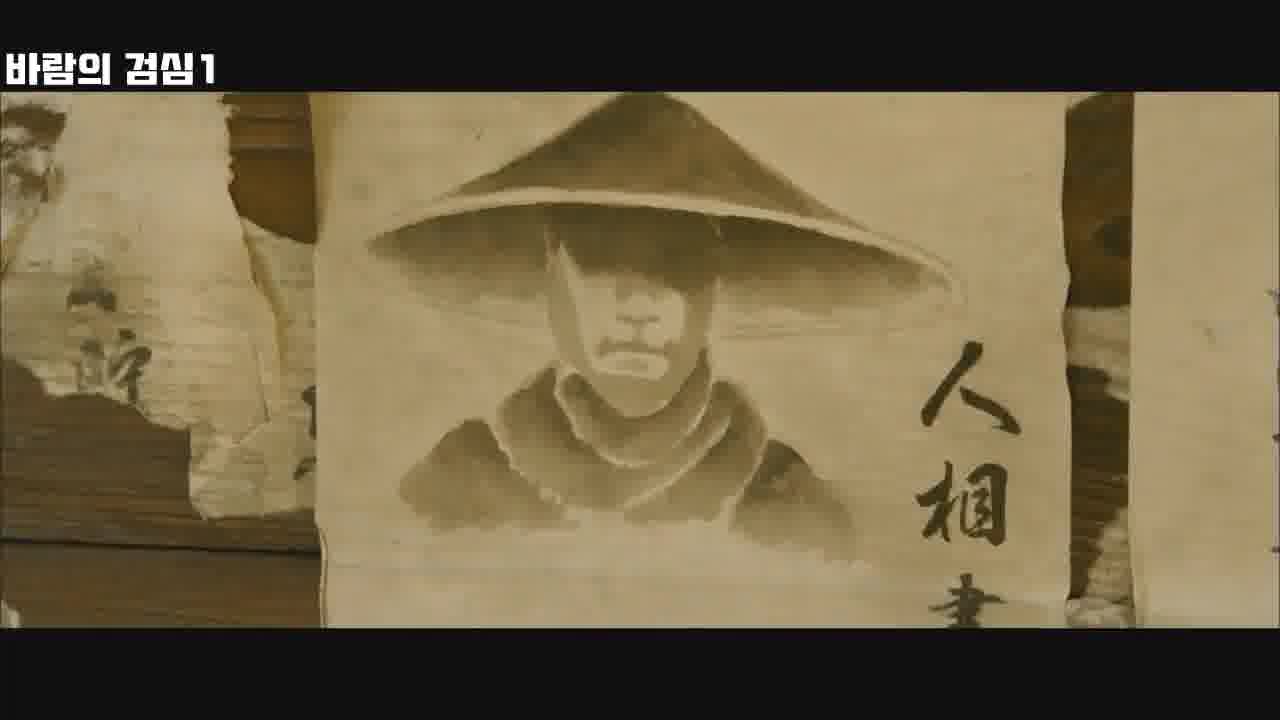 바람의 검심1
人相書